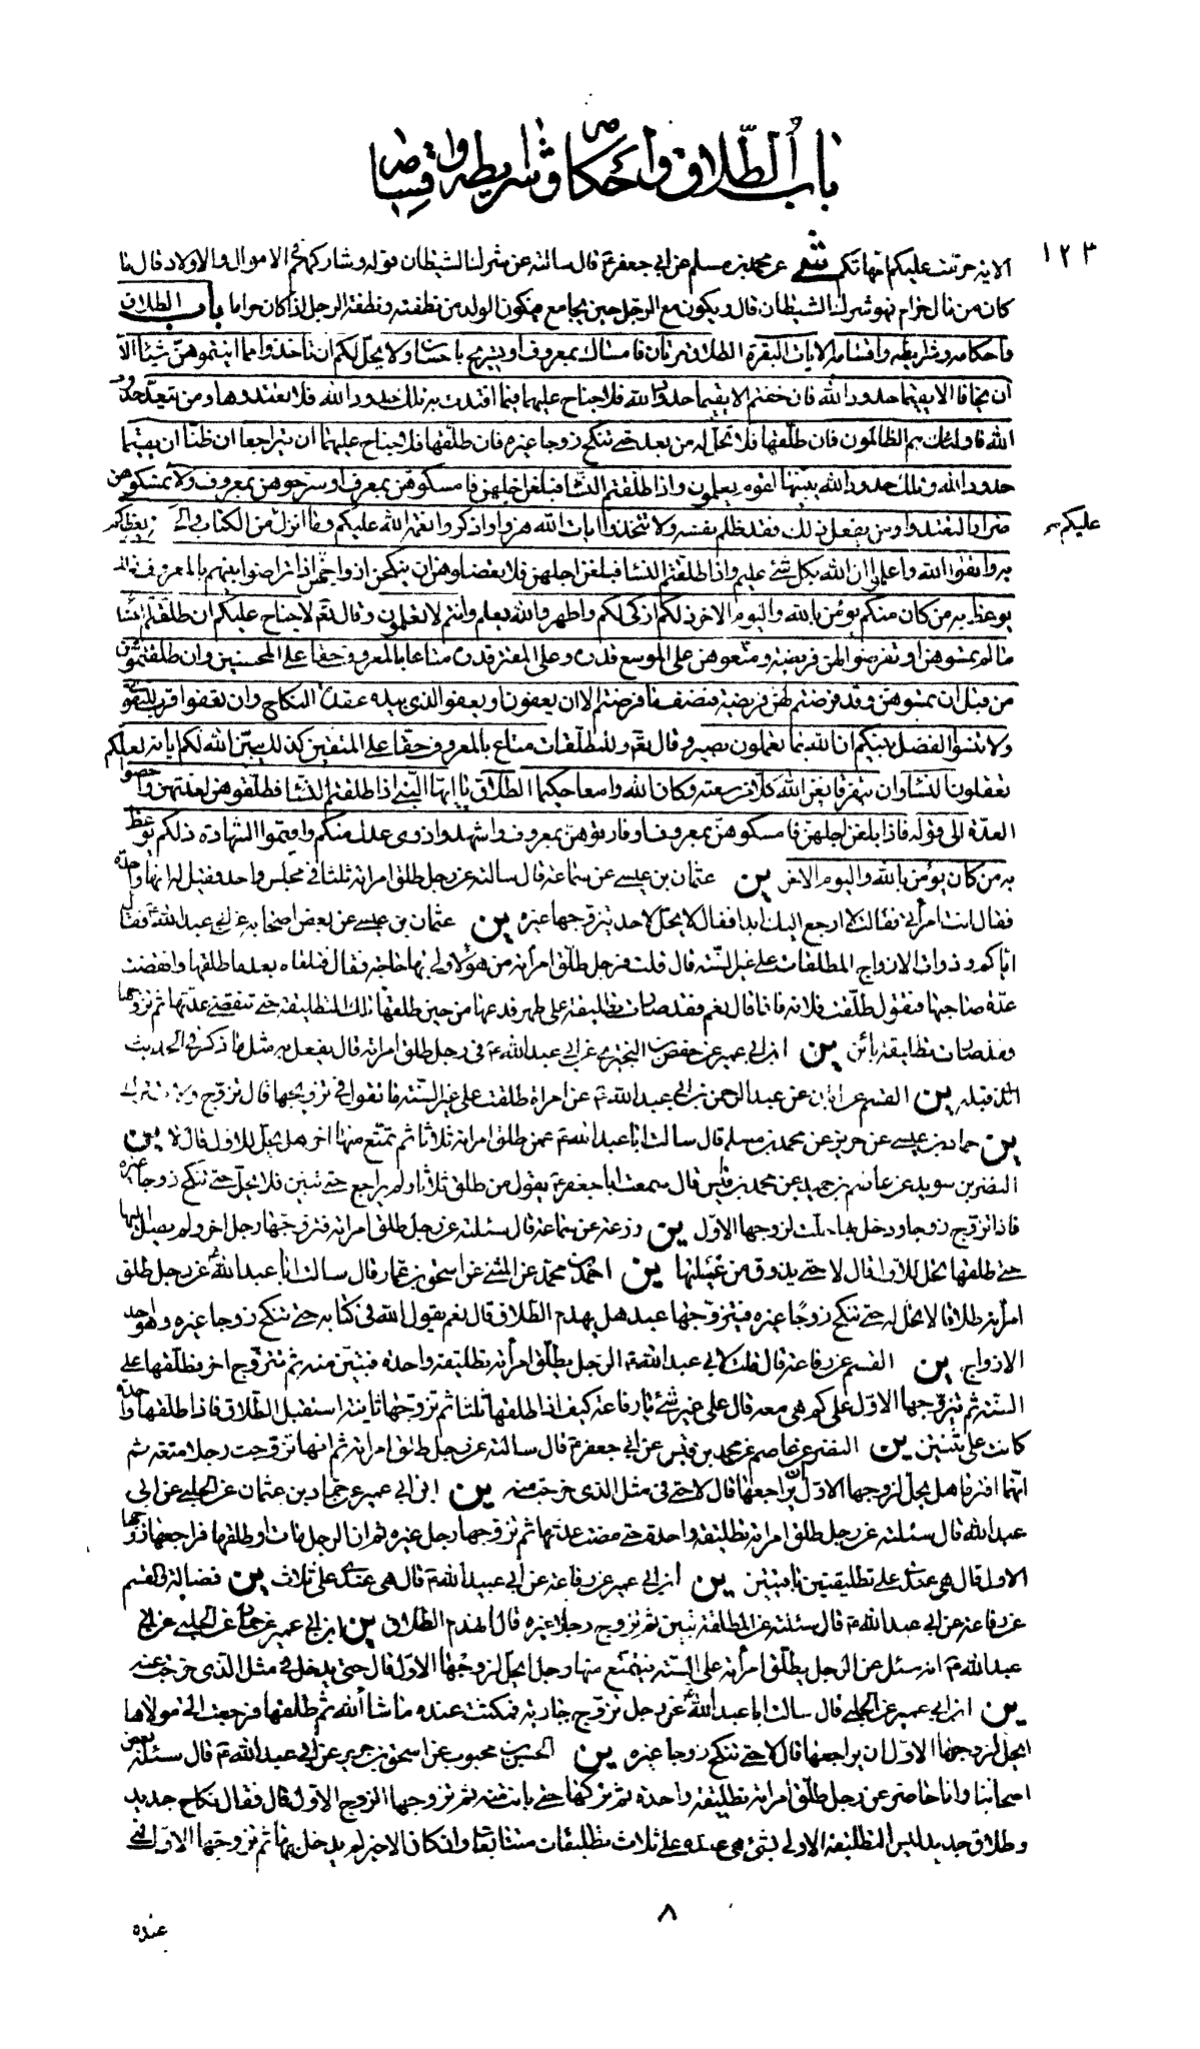 باب الطّلاق وأحكامه وشرايطه وأقسامه
١٢٣
الاية حرّمت عليكم امّهاتكم شى عن محمّد بن مسلم عن ابى جعفر ع قال سالته عن شرك الشيطان قوله وشاركهم فى الاموال والاولاد قال ما
كان من مال حرام فهو شرك الشيطان قال ويكون مع الرجل حين يجامع فيكون الولد من نطفته ونطفة الرجل اذا كان حراما باب الطلاق
واحكامه وشرايطه واقسامه الايات البقرة الطلاق مرّتان فامساك بمعروف او تسريح باحسان ولا يحلّ لكم ان تاخذوا مما اتيتموهنّ شيئا الّا
ان يخافا الا يقيما حدود الله فان خفتم الا يقيما حدود الله فلا جناح عليهما فيما افتدت به تلك حدود الله فلا تعتدوها ومن يتعدّ حدود
الله فاولئك هم الظالمون فان طلّقها فلا تحلّ له من بعد حتى تنكح زوجا غيره فان طلّقها فلا جناح عليهما ان يتراجعا ان ظنّا ان يقيما
حدود الله وتلك حدود الله يبيّنها لقوم يعلمون واذا طلّقتم النّساء فبلغن اجلهنّ فامسكوهنّ بمعروف او سرّحوهنّ بمعروف ولا تمسكوهنّ
ضرارا لتعتدوا ومن يفعل ذلك فقد ظلم نفسه ولا تتّخذوا ايات الله هزوا واذكروا نعمة الله عليكم وما انزل من الكتاب والحكمة يعظكم
عليكم
به واتقوا الله واعلموا ان الله بكل شئ عليم واذا طلّقتم النساء فبلغن اجلهنّ فلا تعضلوهنّ ان ينكحن ازواجهنّ اذا تراضوا بينهم بالمعروف ذلك
يوعظ به من كان منكم يؤمن بالله واليوم الاخر ذلكم ازكى لكم واطهر والله يعلم وانتم لا تعلمون وقال تعم لا جناح عليكم ان طلّقتم النساء
ما لم تمسّوهنّ او تفرضوا لهنّ فريضة ومتّعوهنّ على الموسع قدره وعلى المقتر قدره متاعا بالمعروف حقّا على المحسنين وان طلّقتموهنّ
من قبل ان تمسّوهنّ وقد فرضتم لهنّ فريضة فنصف ما فرضتم الا ان يعفون او يعفو الذى بيده عقدة النكاح وان تعفوا اقرب للتقوى
ولا تنسوا الفضل بينكم ان الله بما تعملون بصير وقال تعم وللمطلّقات متاع بالمعروف حقّا على المتقين كذلك يبيّن الله لكم اياته لعلّكم
تعقلون النساء وان يتفرقا يغن الله كلّا من سعته وكان الله واسعا حكيما الطّلاق يا ايها النّبى اذا طلّقتم النّساء فطلّقوهنّ لعدّتهنّ واحصوا
العدّة الى قوله فاذا بلغن اجلهنّ فامسكوهنّ بمعروف او فارقوهنّ بمعروف واشهدوا ذوى عدل منكم واقيموا الشهادة ذلكم يوعظ
به من كان يؤمن بالله واليوم الاخر ين عثمان بن عيسى عن سماعة قال سالته عن رجل طلق امراته ثلثا فى مجلس واحد فقيل له انها واحدة
فقال انت امرأتى فقالت لا ارجع اليك ابدا فقال لا يحلّ لاحد يتزوّجها غيره ين عثمان بن عيسى عن بعض اصحابه عن ابى عبد الله ع فقال
ايّاكم وذوات الازواج المطلقات على غير السّنة قال قلت فرجل طلّق امراته من هؤلاء ولى بها حاجة فقال فتلقاه بعد ما طلقها وانقضت
عدّة صاحبها فتقول طلّقت فلانة فاذا قال نعم فقد صارت تطليقة على طهر فدعها من حين طلقها تلك التطليقة حتى تنقضى عدّتها ثم تزوجها
وقد صارت تطليقة باين ين ابن ابى عمير عن حفص بن البخترى عن ابى عبد الله ع فى رجل طلق امراته قال يفعل به مثل ما ذكر فى الحديث
الذى قبله ين القسم عن ابان عن عبد الرحمن بن ابى عبد الله ع عن امراة طلقت على غير السّنة ما تقول فى تزويجها قال تزوّج ولا تترك
ين حماد بن عيسى عن حريز عن محمد بن مسلم قال سالت ابا عبد الله ع عمن طلق امراته ثلاثا ثم تمتّع منها اخر هل تحلّ للاوّل قال لا ين
النضر بن سويد عن عاصم بن حميد عن محمد بن قيس قال سمعت ابا جعفر ع يقول من طلق ثلاثا ولم يراجع حتى تبين فلا تحلّ حتى تنكح زوجا غيره
فاذا تزوّج زوجا ودخل بها حلّت لزوجها الاوّل ين زرعة عن سماعة قال سئلته عن رجل طلق امراته فتزوّجها رجل اخر ولم يصل اليها
حتى طلقها تحل للاوّل قال لا حتى يذوق من عسيلتها ين احمد بن محمد عن المثنى عن اسحق بن عمّار قال سالت ابا عبد الله ع عن رجل طلق
امرأته طلاقا لا تحلّ له حتى تنكح زوجًا غيره فيتزوّجها عبد هل يهدم الطلاق قال نعم يقول الله فى كتابه حتى تنكح زوجا غيره وهو احد
الازواج ين القسم عن رفاعة قال قلت لابى عبد الله ع الرّجل يطلّق امرأته تطليقة واحدة فتبين منه ثم تتزوّج اخر فطلّقها على
السّنة ثم تزوّجها الاوّل على كم هى معه قال على غير شئ يا رفاعة كيف اذا طلقها ثلثا ثم تزوجها ثانية استقبل الطّلاق فاذا طلقها واحدة
كانت على ثنتين ين النضر عن عاصم عن محمد بن قيس عن ابى جعفر ع قال سالته عن رجل طلق امراته ثم انها تزوجت رجلا متعة ثم
انّهما افترقا هل يحلّ لزوجها الاوّل ان يراجعها قال لا حتى فى مثل الذى خرجت منه ين ابن ابى عمير عن حماد بن عثمان عن الحلبى عن ابى
عبد الله قال سئلته عن رجل طلق امراته تطليقة واحدة حتى مضت عدتها ثم تزوجها رجل غيره ثم ان الرجل مات او طلقها فراجعها زوجها
الاول قال هى عنده على تطليقتين باقيتين ين ابن ابى عمير عن رفاعة عن ابى عبد الله ع قال هى عنده على ثلاث ين فضالة والقسم
عن رفاعة عن ابى عبد الله ع قال سئلته عن المطلقة تبين ثم تزوج رجلا غيره قال انهدم الطلاق ين ابن ابى عمير عن حماد عن الحلبى عن ابى
عبد الله ع انه سئل عن الرجل يطلّق امراته على السّنة فيتمتّع منها رجل ايحلّ لزوجها الاوّل قال حتى يدخل فى مثل الذى خرجت عنه
ين ابن ابى عمير عن الحلبى قال سالت ابا عبد الله ع عن رجل تزوّج جارية فمكثت عنده ما شاء الله ثم طلقها فرجعت الى مولاها
ايحلّ لزوجها الاوّل ان يراجعها قال لا حتى تنكح زوجا غيره ين الحسن بن محبوب عن اسحق بن جرير عن ابى عبد الله ع قال سئله بعض
اصحابنا وانا حاضر عن رجل طلّق امراته تطليقة واحدة ثم تركها حتى بانت منه ثم تزوجها الزوج الاوّل قال فقال نكاح جديد
وطلاق جديد ليس التطليقة الاولى بشئ هى عنده على ثلاث تطليقات مستانفات وان كان الاخير لم يدخل بها ثم تزوجها الاوّل فهى
٨
عنده